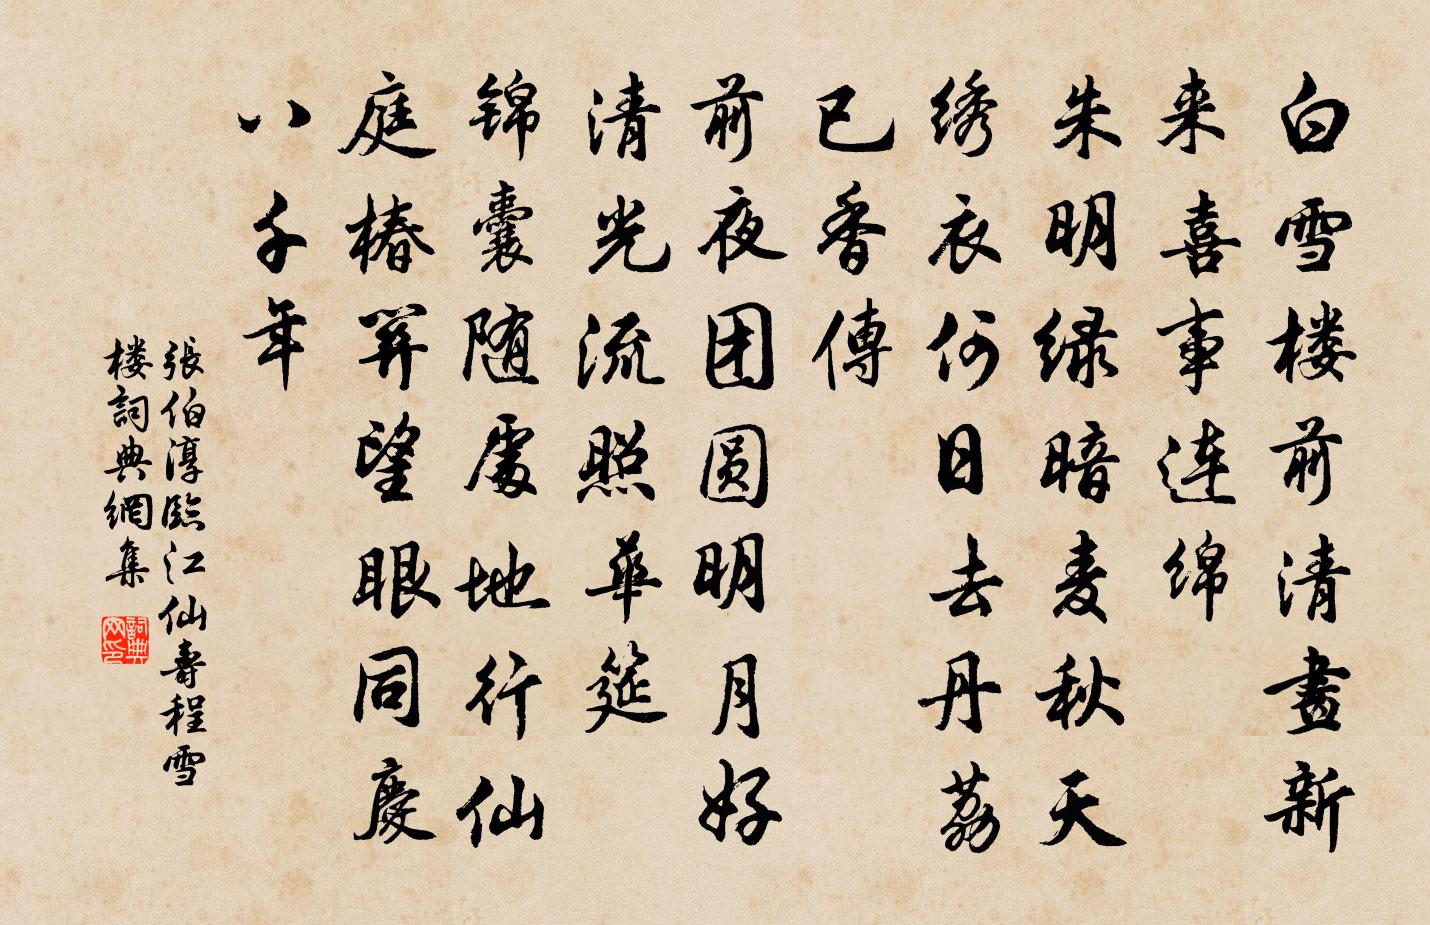 白雪楼前清晝新
来喜事连绵
朱明绿暗麦秋天
绣衣何日去丹荔
已香傳
前夜团圆明月好
清光流照华筵
锦囊随處地行仙
庭椿笄望眼同慶
八千年
張伯淳臨江仙壽程雪
楼詞典網集
詞典网印